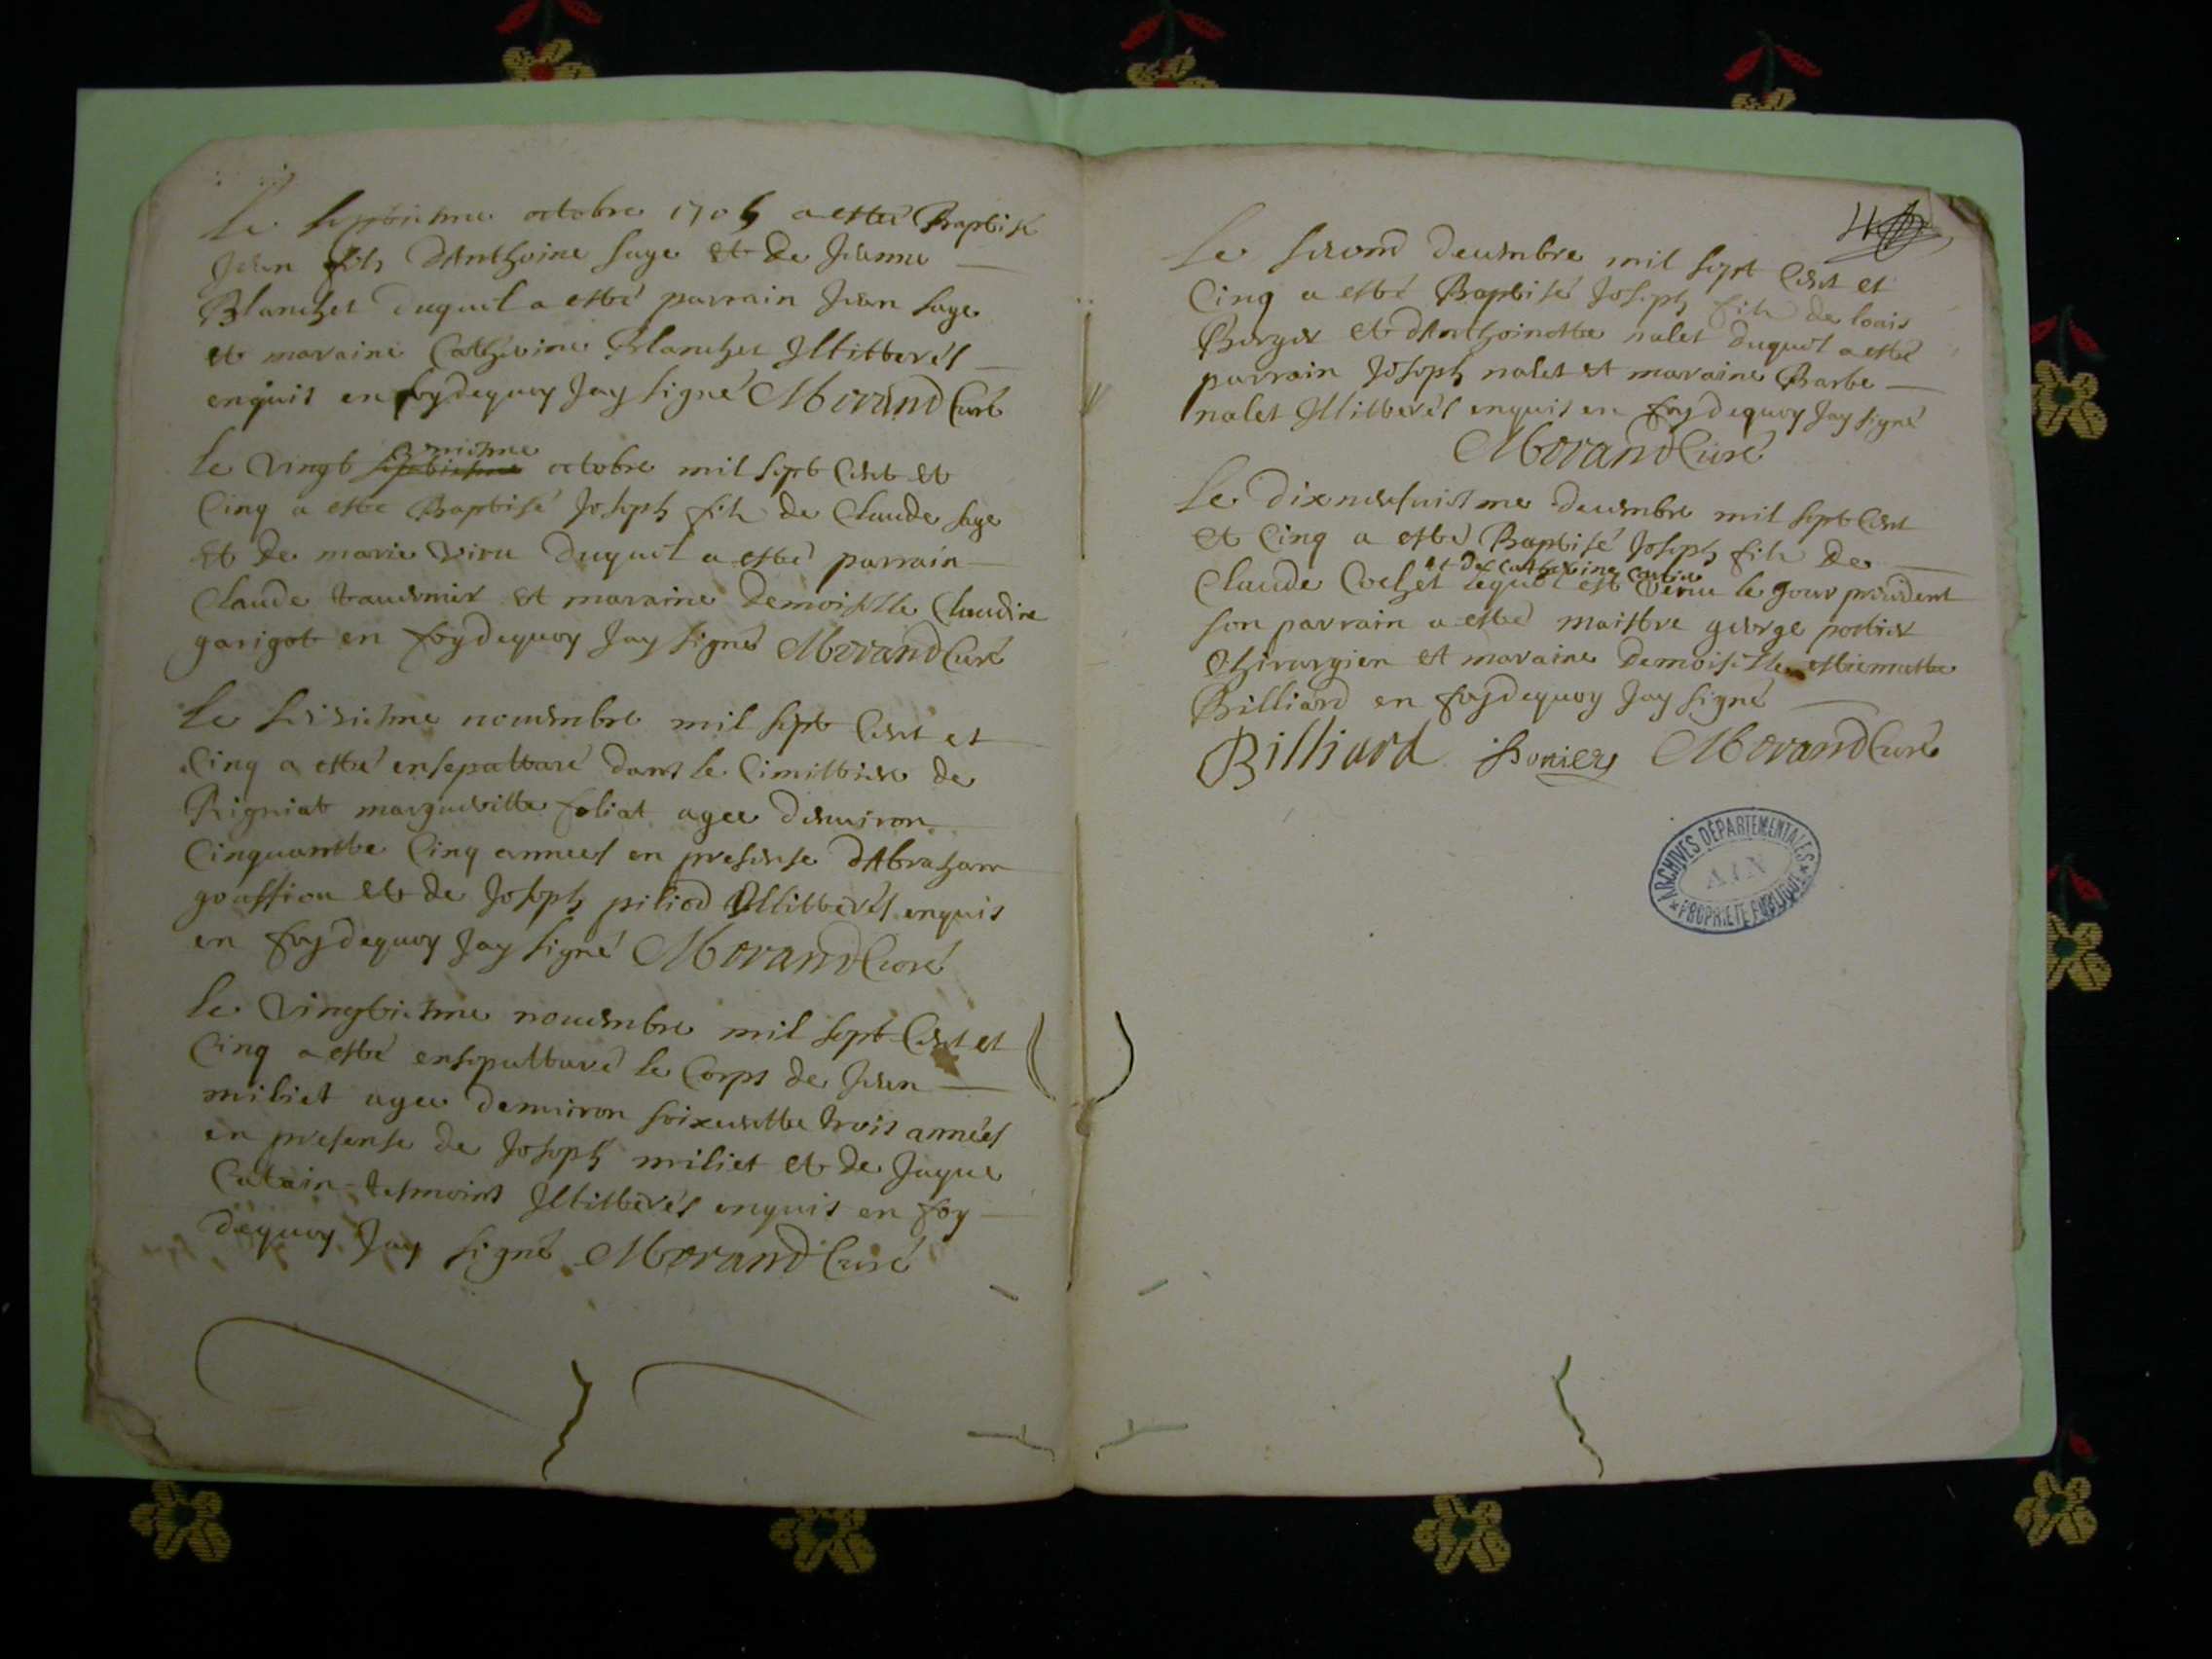 Le septiesme octobre 1705 a esteé Baptisé
Jean fils dAnthoine sage et de Jeanne
Blanchet duquel a esté parrain Jean sage
et maraine Catherine Blanchet Illitterés
enquis en foy dequoy Jay signé Morand Curé
le vingt uniesme octobre mil sept Cent et
Cinq a esté Baptisé Joseph fils de Claude sage
et de marie duquel a esté parrain
Claude et maraine demoiselle Claudine
garigot en foy dequoy Jay signé Morand Curé
le seisiesme nouembre mil sept Cent et
Cinq a esté ensepulturé dans le Cimittiere de
Rigniat margueritte foliat agee denuiron
Cinquantte Cinq annees en presense dAbraham
goassiou et de Joseph piliod Illitterés enquis
en foy dequoy Jay signé Morand Curé
le vingtiesme nouembre mil sept Cent et
Cinq a esté ensepulturé le Corps de Jean
miliet agee denuiron soixentte trois années
en presense de Joseph miliet et de Jaque
Catain tesmoins Illitterés enquis en foy
dequoy Jay signé Morand Curé
Le second decembre mil sept Cent et
Cinq a esté Baptisé Joseph fils de louis
Berger et dAnthoinette nalet duquel a esté
parrain Joseph nalet et maraine Barbe
nalet Illitterés enquis en foy dequoy Jay signé
Morand Curé
Le dixneufuiesme decembre mil sept Cent
et Cinq a esté Baptisé Joseph fils de
et de Catherine
Claude Cochet lequel est venu le jour precedent
son parrain a esté maistre george portier
Chirurgien et maraine demoiselle estiennette
Billiard en foy dequoy Jay signé
Billiard Morand Curé
ARCHIVES DÉPARTEMENTALES
AIN
PROPRIÉTÉ PUBLIQUE